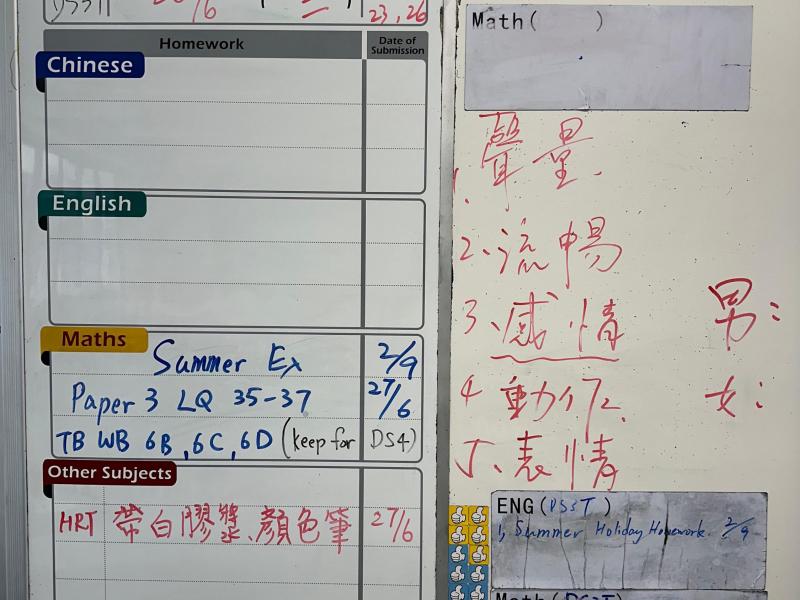 23, 26
Homework
Date of Submission
Chinese
English
Maths
Summer Ex 2/9
Paper 3 LQ 35-37 27/6
TB WB 6B, 6C, 6D (keep for DS4)
Other Subjects
HRT 帶白膠漿、顏色筆 27/6
Math( )
1. 聲量.
2、流暢
3、感情
4 動作.
5、表情
男:
女:
ENG(DS3T)
1, Summer Holiday Homework 2/9